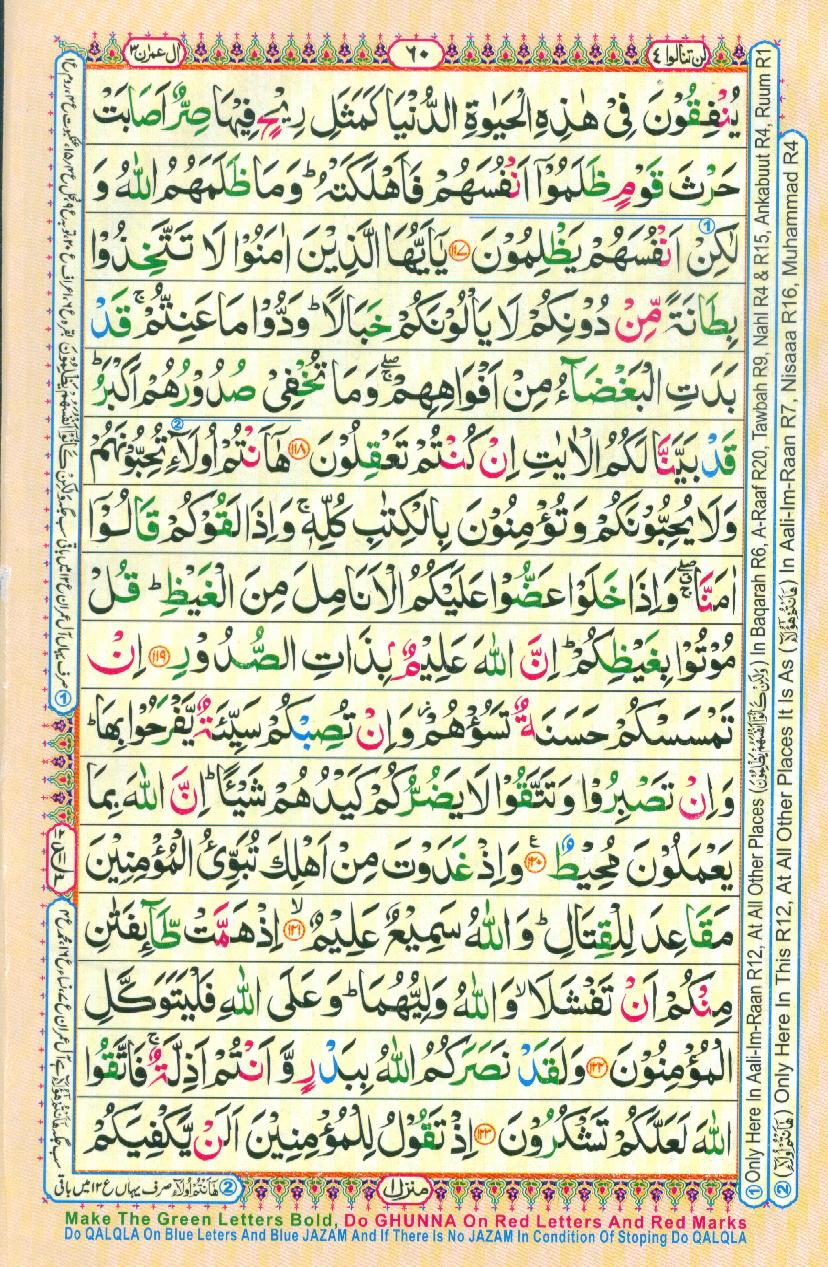 لن تنالوا ٤
٦٠
ال عمرٰن ٣
یُنْفِقُوْنَ فِیْ هٰذِهِ الْحَیٰوةِ الدُّنْیَا كَمَثَلِ رِیْحٍ فِیْهَا صِرٌّ اَصَابَتْ
حَرْثَ قَوْمٍ ظَلَمُوْۤا اَنْفُسَهُمْ فَاَهْلَكَتْهُ ؕ وَمَا ظَلَمَهُمُ اللّٰهُ وَ
لٰكِنْ اَنْفُسَهُمْ یَظْلِمُوْنَ ۝۱۱۷ یٰۤاَیُّهَا الَّذِیْنَ اٰمَنُوْا لَا تَتَّخِذُوْا
بِطَانَةً مِّنْ دُوْنِكُمْ لَا یَاْلُوْنَكُمْ خَبَالًا ؕ وَدُّوْا مَا عَنِتُّمْ ۚ قَدْ
بَدَتِ الْبَغْضَآءُ مِنْ اَفْوَاهِهِمْ ۖۚ وَمَا تُخْفِیْ صُدُوْرُهُمْ اَكْبَرُ ؕ
قَدْ بَیَّنَّا لَكُمُ الْاٰیٰتِ اِنْ كُنْتُمْ تَعْقِلُوْنَ ۝۱۱۸ هٰۤاَنْتُمْ اُولَآءِ تُحِبُّوْنَهُمْ
وَلَا یُحِبُّوْنَكُمْ وَتُؤْمِنُوْنَ بِالْكِتٰبِ كُلِّهٖ ۚ وَاِذَا لَقُوْكُمْ قَالُوْۤا
اٰمَنَّا ۖۗۚ وَاِذَا خَلَوْا عَضُّوْا عَلَیْكُمُ الْاَنَامِلَ مِنَ الْغَیْظِ ؕ قُلْ
مُوْتُوْا بِغَیْظِكُمْ ؕ اِنَّ اللّٰهَ عَلِیْمٌۢ بِذَاتِ الصُّدُوْرِ ۝۱۱۹ اِنْ
تَمْسَسْكُمْ حَسَنَةٌ تَسُؤْهُمْ ؗ وَاِنْ تُصِبْكُمْ سَیِّئَةٌ یَّفْرَحُوْا بِهَا ؕ
وَاِنْ تَصْبِرُوْا وَتَتَّقُوْا لَا یَضُرُّكُمْ كَیْدُهُمْ شَیْـًٔا ؕ اِنَّ اللّٰهَ بِمَا
یَعْمَلُوْنَ مُحِیْطٌ ۝۱۲۰ وَاِذْ غَدَوْتَ مِنْ اَهْلِكَ تُبَوِّئُ الْمُؤْمِنِیْنَ
مَقَاعِدَ لِلْقِتَالِ ؕ وَاللّٰهُ سَمِیْعٌ عَلِیْمٌ ۝۱۲۱ اِذْ هَمَّتْ طَّآئِفَتٰنِ
مِنْكُمْ اَنْ تَفْشَلَا ۙ وَاللّٰهُ وَلِیُّهُمَا ؕ وَعَلَی اللّٰهِ فَلْیَتَوَكَّلِ
الْمُؤْمِنُوْنَ ۝۱۲۲ وَلَقَدْ نَصَرَكُمُ اللّٰهُ بِبَدْرٍ وَّاَنْتُمْ اَذِلَّةٌ ۚ فَاتَّقُوا
اللّٰهَ لَعَلَّكُمْ تَشْكُرُوْنَ ۝۱۲۳ اِذْ تَقُوْلُ لِلْمُؤْمِنِیْنَ اَلَنْ یَّكْفِیَكُمْ
منزل ١
② هٰۤاَنْتُمْ اُولَآءِ صرف یہاں ع ۱۲ میں باقی
① Only Here In Aali-Im-Raan R12, At All Other Places (وَلٰكِنْ كَانُوْۤا اَنْفُسَهُمْ یَظْلِمُوْنَ) In Baqarah R6, A-Raaf R20, Tawbah R9, Nahl R4 & R15, Ankabuut R4, Ruum R1
② (هٰۤاَنْتُمْ اُولَآءِ) Only Here In This R12, At All Other Places It Is As (هٰۤاَنْتُمْ هٰۤؤُلَآءِ) In Aali-Im-Raan R7, Nisaaa R16, Muhammad R4
Make The Green Letters Bold, Do GHUNNA On Red Letters And Red Marks
Do QALQLA On Blue Leters And Blue JAZAM And If There Is No JAZAM In Condition Of Stoping Do QALQLA